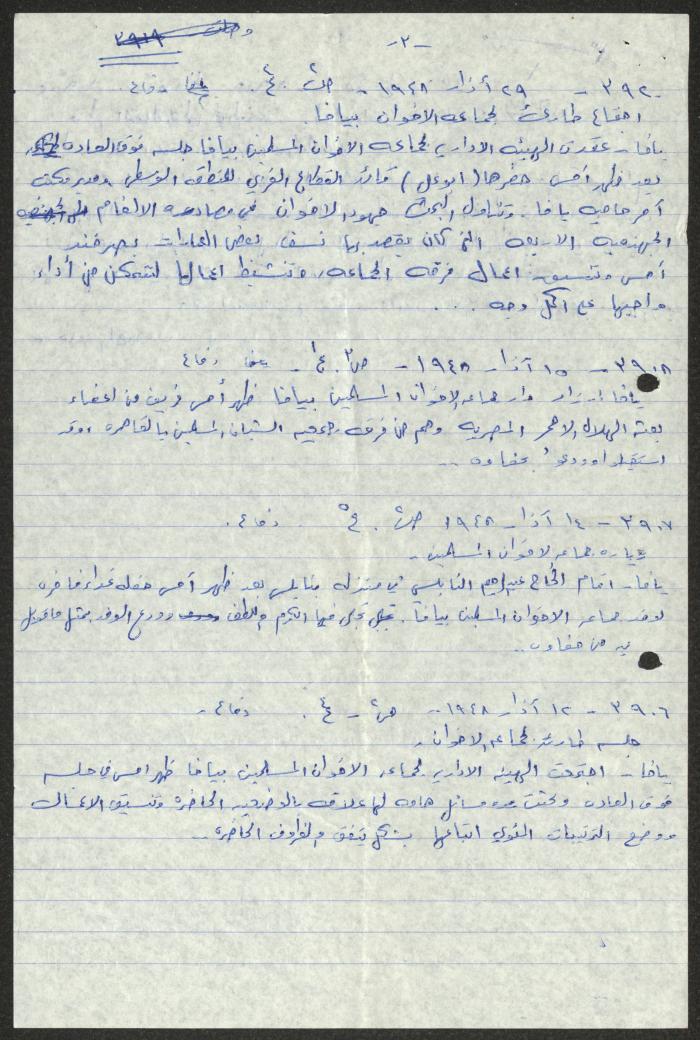 -٢-
٣٩٢٠ - ٢٩ آذار ١٩٤٨ - ص ٤ . يافا دفاع
اجتماع طارئ لجماعة الاخوان بيافا.
يافا - عقدت الهيئه الاداريه لجماعه الاخوان المسلمين بيافا جلسه فوق العاده
بعد ظهر أمس حضرها ( ابو علي ) قائد القطاع الغربي للمنطقه الوسطى ومدير مكتب
آمر حاميه يافا. وتناول البحث جهود الاخوان في مصادره الالغام
اليهوديه الاربعه التي كان يقصد بها نسف بعض العمارات بصرفند
أمس وتنسيق اعمال فرقه الجماعه، وتنشيط اعمالها لتتمكن من أداء
واجبها على اكمل وجه ...
٣٩٠٨ - ١٥ آذار ١٩٤٨ - ص ٢ . يافا دفاع
يافا - زار دار جماعه الاخوان المسلمين بيافا ظهر أمس فريق من اعضاء
بعثه الهلال الاحمر المصريه وهم من فرقه جمعيه الشبان المسلمين بالقاهره وقد
استقبلوا وودعوا بحفاوه ..
٣٩٠٧ - ١٤ آذار ١٩٤٨ ص . دفاع .
زياره جماعه الاخوان المسلمين -
يافا - اقام الحاج عبد الرحيم النابلسي في منزله بنابلس بعد ظهر أمس حفله غداء فاخره
لوفد جماعه الاخوان المسلمين بيافا. تجلى فيها الكرم واللطف وودع الوفد بمثل ما قوبل
به من حفاوه ..
٣٩٠٦ - ١٢ آذار ١٩٤٨ - ص - ٤ . دفاع -
جلسه طارئه لجماعه الاخوان -
يافا - اجتمعت الهيئه الاداريه لجماعه الاخوان المسلمين بيافا ظهر امس في جلسه
فوق العاده وبحثت مسائل هامه لها علاقه بالوضعيه الحاضره وتنسيق الاعمال
ووضع الترتيبات المنوي اتباعها بشكل يتفق والظروف الحاضره ..